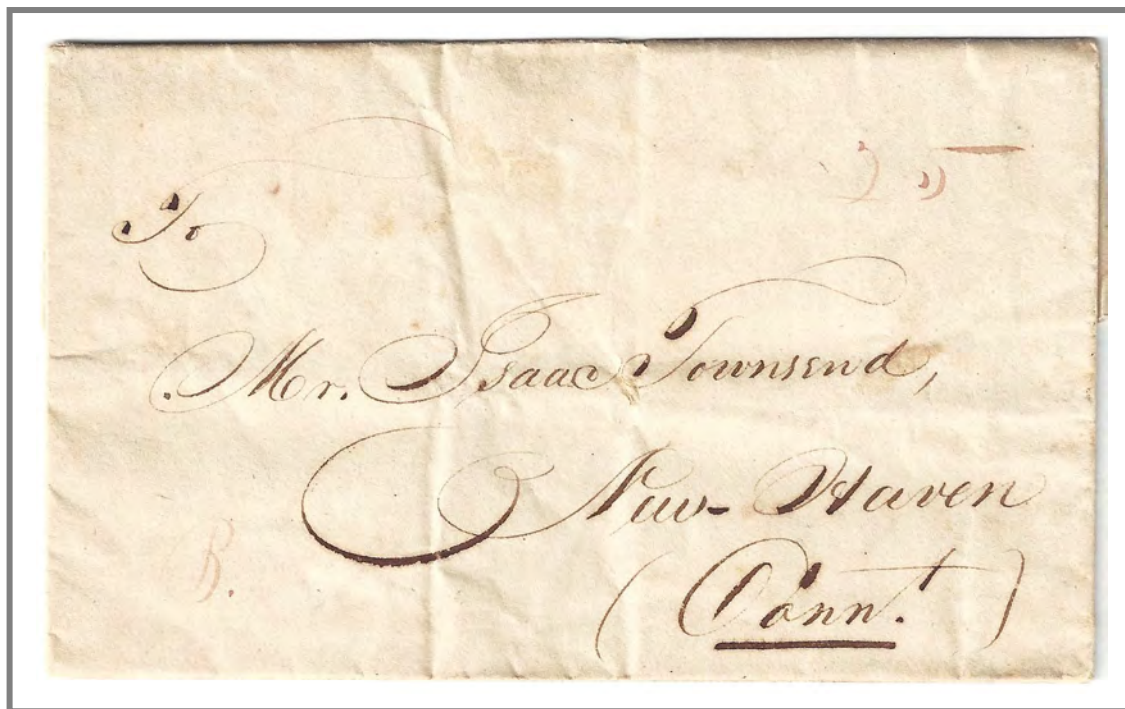 To
Mr. Isaac Townsend,
New-Haven
(Connt.)
B.